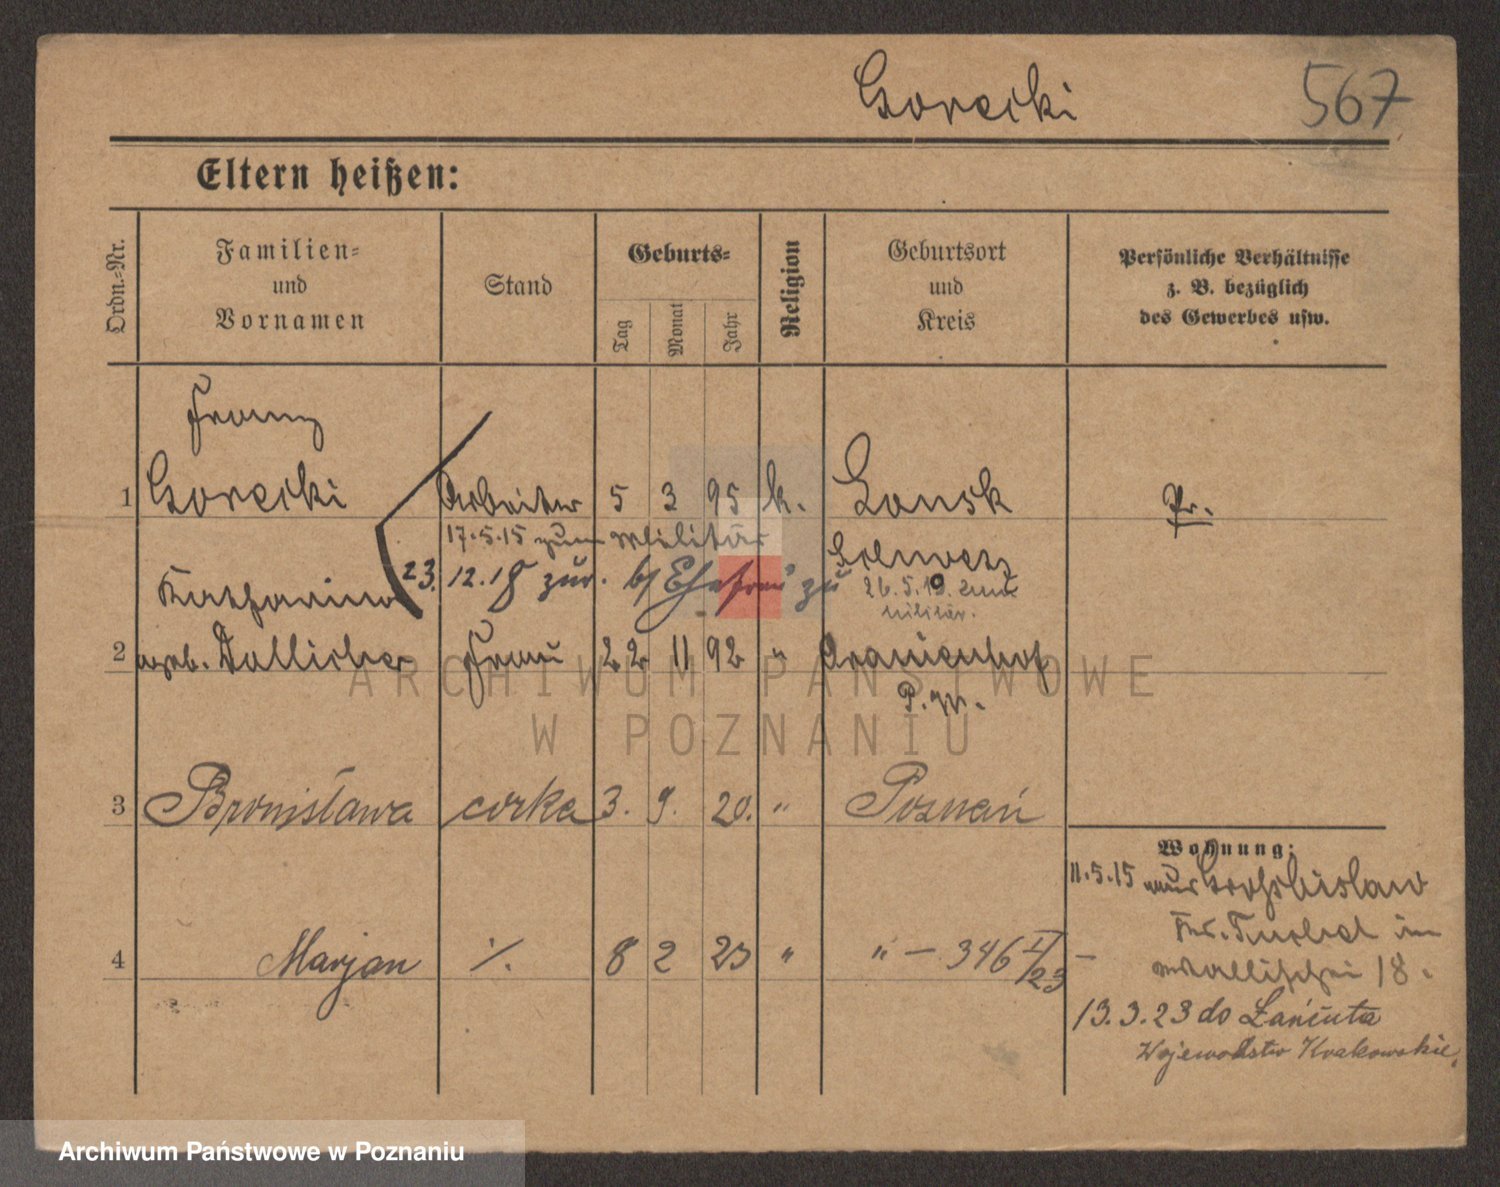 Gorecki 567
Eltern heißen:
Ordn.-Nr.
Familien-
und
Vornamen
Stand
Geburts-
Tag
Monat
Jahr
Religion
Geburtsort
und
Kreis
Persönliche Verhältnisse
z. B. bezüglich
des Gewerbes usw.
Franz
1 Gorecki Arbeiter 5 3 95 k. Lonsk Pr.
17.5.15 zum Militär Schwetz
23.12.18 zur. b/ Ehefrau zu
26.5.19. zum
Militär.
Katharina
2 geb. Frau 22 11 92 " Oranienhof
3 Bronisława corka 3. 9. 20. " Poznań
Wohnung:
11.5.15 Großbislaw
Kr. Tuchel im
4 Marjan 8 2 23 " " — 346 I/23 —
Wallischei 18.
13.3.23 do Łańcuta
Województw Krakowskie.
ARCHIWUM PAŃSTWOWE
W POZNANIU
Archiwum Państwowe w Poznaniu